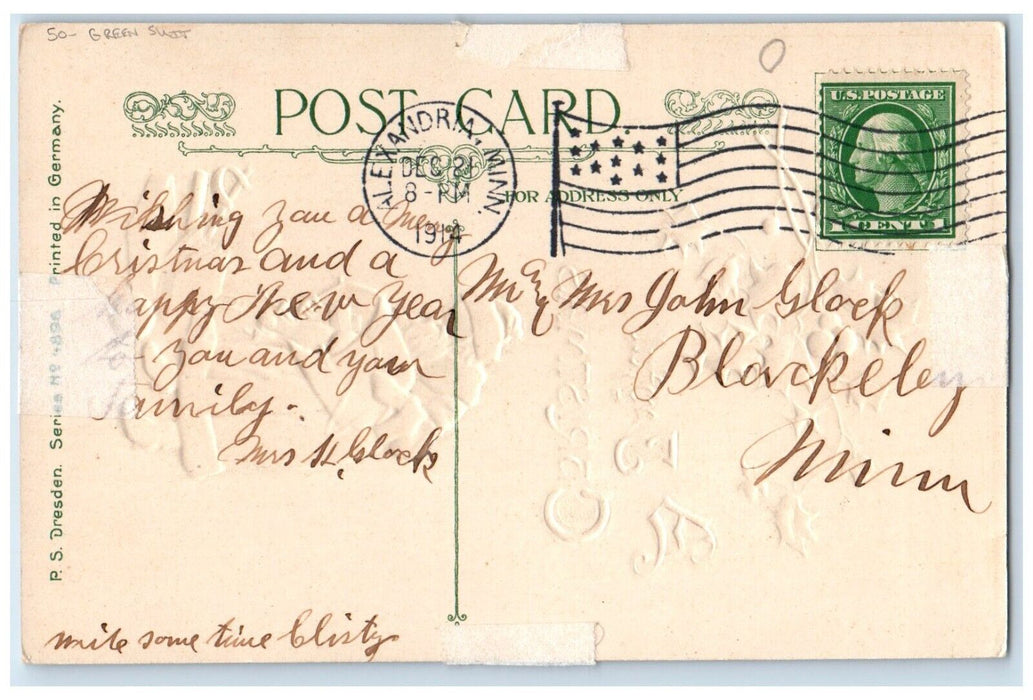 50- GREEN SUIT
POST CARD
ALEXANDRIA, MINN.
DEC 21
8 - PM
1914
U.S. POSTAGE
1 CENT 1
FOR ADDRESS ONLY
Wishing you a merry
Cristmas and a
appy New Year
you and your
amily.
Mrs H. Glock
Mr & Mrs John Glock
Blackeley
Minn
P. S. Dresden. Series No 4896 Printed in Germany.
some time Clisty